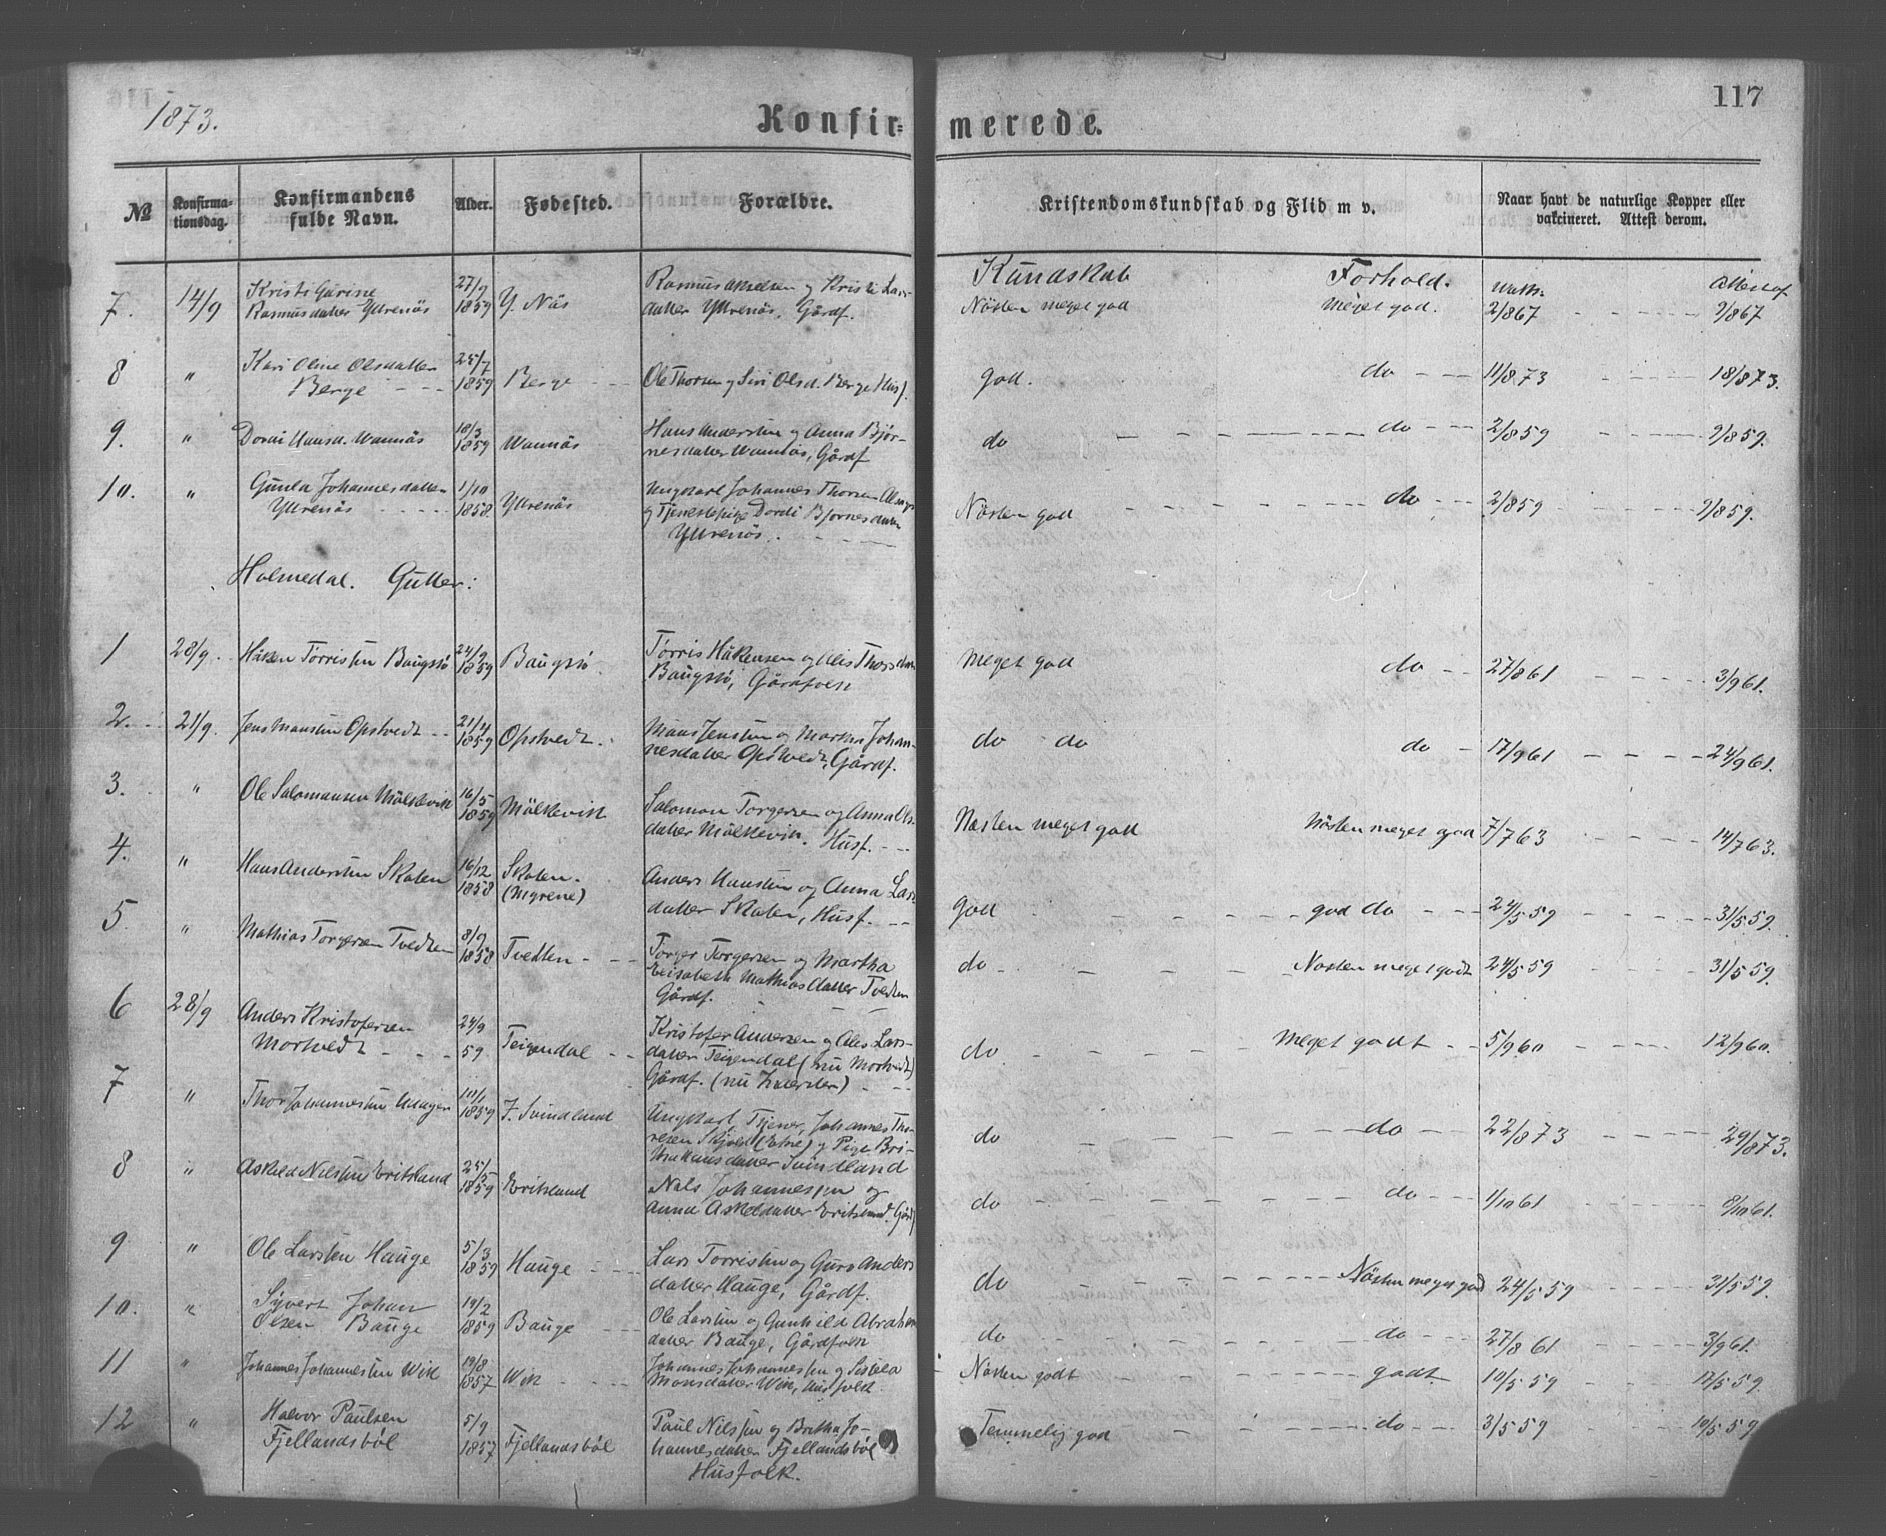 1873.
117
Konfir=
merede.
№
Konfirma-
tionsdag.
Konfirmandens
fulde Navn.
Alder.
Fødested.
Forældre.
Kristendomskundskab og Flid m v.
Naar havt de naturlige Kopper eller
vakcineret. Attest derom.
Kundskab Forhold. Attest af
7. 14/9 Kristi Gurine 27/9 Y. Näs Rasmus og Kristi Lars-
Rasmusdatter Yttrenäs 1859 datter Yttrenäs, Gårdf. Nästen meget god Meget god. 2/867 9/867
8 " Kari Oline Olsdatter 25/7
Berge 1859 Berge Ole Thorsen og Siri Olsd. Berge Husf. god. do 11/873 18/873.
9. " Dordi Hansd. Wannäs 18/3 1859 Wannäs Hans Andersen og Anna Bjør-
nesdatter Wannäs, Gårdf do do 2/859 9/859.
10. " Gunla Johannesdatter 1/10 Ungkarl Johannes Thorsen
Yttrenäs 1858. Yttrenäs og Tjenestepige Dordi Bjørnesdatter
Yttrenäs. Nästen god do 2/859 9/859.
Holmedal. Gutter:
1 28/9. Håken Tørrissen Baugstø 24/9 1859 Baugstø Tørris Håkensen og Alis Thorsdatter
Baugstø, Gårdfolk Meget god do 27/861 3/961.
2. 21/9. Jens Monssen Opstvedt 21/4 1859 Opstvedt. Mons Jenssen og Martha Johan-
nesdatter Opstvedt, Gårdf. do do do 17/961 24/961.
3. " Ole Salomonsen Mølstevik 16/5 1859 Mølstevik Salomon Torgersen og Anna Ols-
datter Mølstevik. Husf. Nästen meget god Nästen meget god 7/763 14/763.
4. " Hans Anderssen Skaten 16/12 1858 Skaten. Anders Hanssen og Anna Lars-
(Myrene) datter Skaten, Husf. God god do 24/559 31/559.
5. " Mathias Torgersen Tvedten 8/9 1858 Tvedten Torger Torgersen og Martha
Elisabeth Mathiasdatter Tvedten
Gårdf. do Nästen meget godt 24/559 31/559.
6 28/9 Anders Kristofersen 24/9 Kristofer Andersen og Ales Lars-
Mortvedt 59. Teigendal datter Teigendal (nu Mortvedt)
Gårdf. do Meget godt 5/960 12/960.
7 " Thor Johannessen 1859 Y. Svindland Ungkarl, Tjener, Johannes Tho-
resen Skjold (Etne) og Pige Bri-
the Hansdatter Svindland do do 22/873 29/873.
8 " Askeld Nilssen Eritsland 25/5 1859 Eritsland Nils Johannessen og
Anna Askeldatter Eritsland. Gårdf do do 1/1061 8/1061.
9 " Ole Larssen Hauge 5/3 1859 Hauge Lars Torrissen og Guro Anders
datter Hauge, Gårdf. do Nästen meget god 24/559 31/559.
10. " Syvert Johan 19/2 Ole Larssen og Gunhild Abraham
Olsen Bauge 1859 Bauge datter Bauge, Gårdfolk do do 27/861 3/961.
11 " Johannes Johannessen Wik 19/8 1857 Wik Johannes Johannessen og Sissela
Monsdatter Wik, Husfolk. Nästen godt godt 10/559 17/559.
12 " Halvor Paulsen 5/9 Paul Nilssen og Britha Jo-
Fjellandsbøl 1857 Fjellandsbøl hannesdatter Fjellandsbøl
Husfolk. Temmelig god do 3/559 10/559.